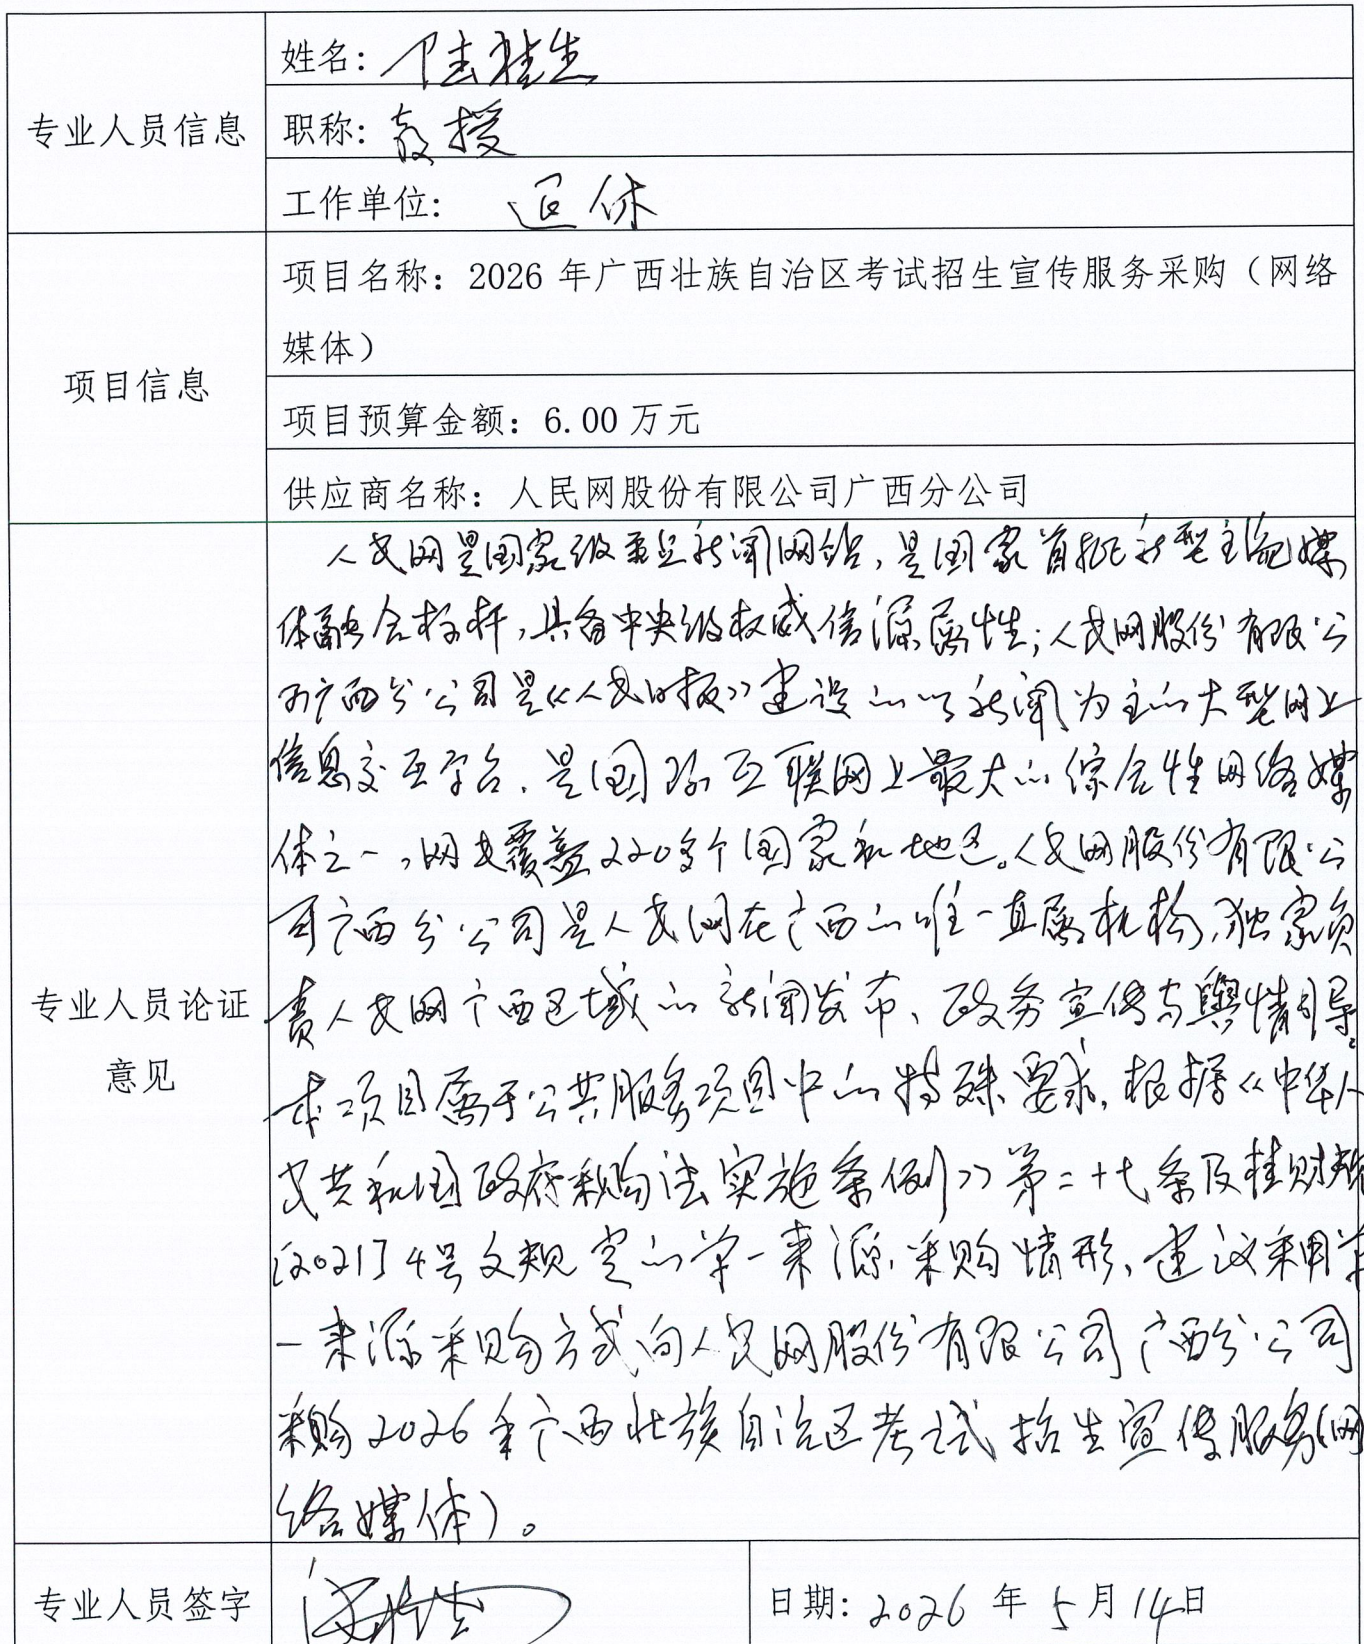 姓名: 陆桂生
职称: 教授
专业人员信息
工作单位: 退休
项目名称: 2026 年广西壮族自治区考试招生宣传服务采购（网络
媒体）
项目信息
项目预算金额: 6.00 万元
供应商名称: 人民网股份有限公司广西分公司
人民网是国家级重点新闻网站,是国家首批新型主流媒
体融合标杆,具备中央级权威信源属性;人民网股份有限公
司广西分公司是《人民日报》建设的以新闻为主的大型网上
信息交互平台,是国际互联网上最大的综合性网络媒
体之一,网民覆盖220多个国家和地区。人民网股份有限公
司广西分公司是人民网在广西的唯一直属机构,独家负
责人民网广西区域的新闻发布、政务宣传与舆情引导。
专业人员论证
意见
本项目属于公共服务项目中的特殊要求,根据《中华人
民共和国政府采购法实施条例》第二十七条及桂财采
[2021]4号文规定的单一来源采购情形,建议采用单
一来源采购方式向人民网股份有限公司广西分公司
采购2026年广西壮族自治区考试招生宣传服务(网
络媒体)。
专业人员签字
日期: 2026 年 5 月 14日